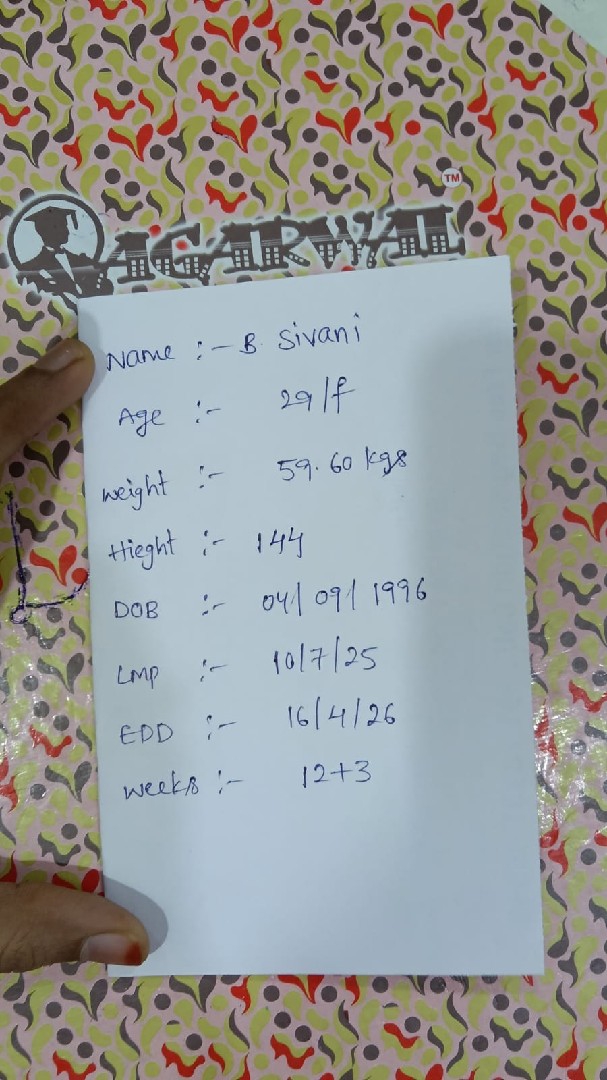 AGARWAL
TM
Name :- B. Sivani
Age :- 29/f
weight :- 59.60 kgs
Hieght :- 144
DOB :- 04/09/1996
LMP :- 10/7/25
EDD :- 16/4/26
weeks :- 12+3